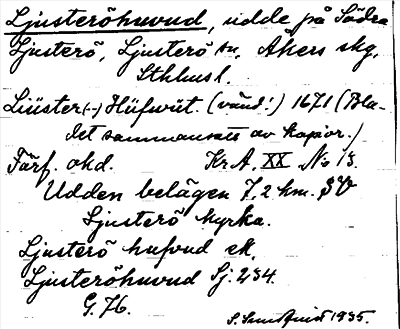 Ljusteröhuvud, udde på Södra
Ljusterö, Ljusterö sn, Åkers skg,
Sthlmsl.
Liüster(-) Hüfwüt. (vänd!) 1671 (Bla-
det sammansatt av kopior.)
Förf. okd. Kr. A, XX No 13.
Udden belägen 7,2 km. SV
Ljusterö kyrka.
Ljusterö hufvud ek.
Ljusteröhuvud Sj. 234.
G. 76.
1935.